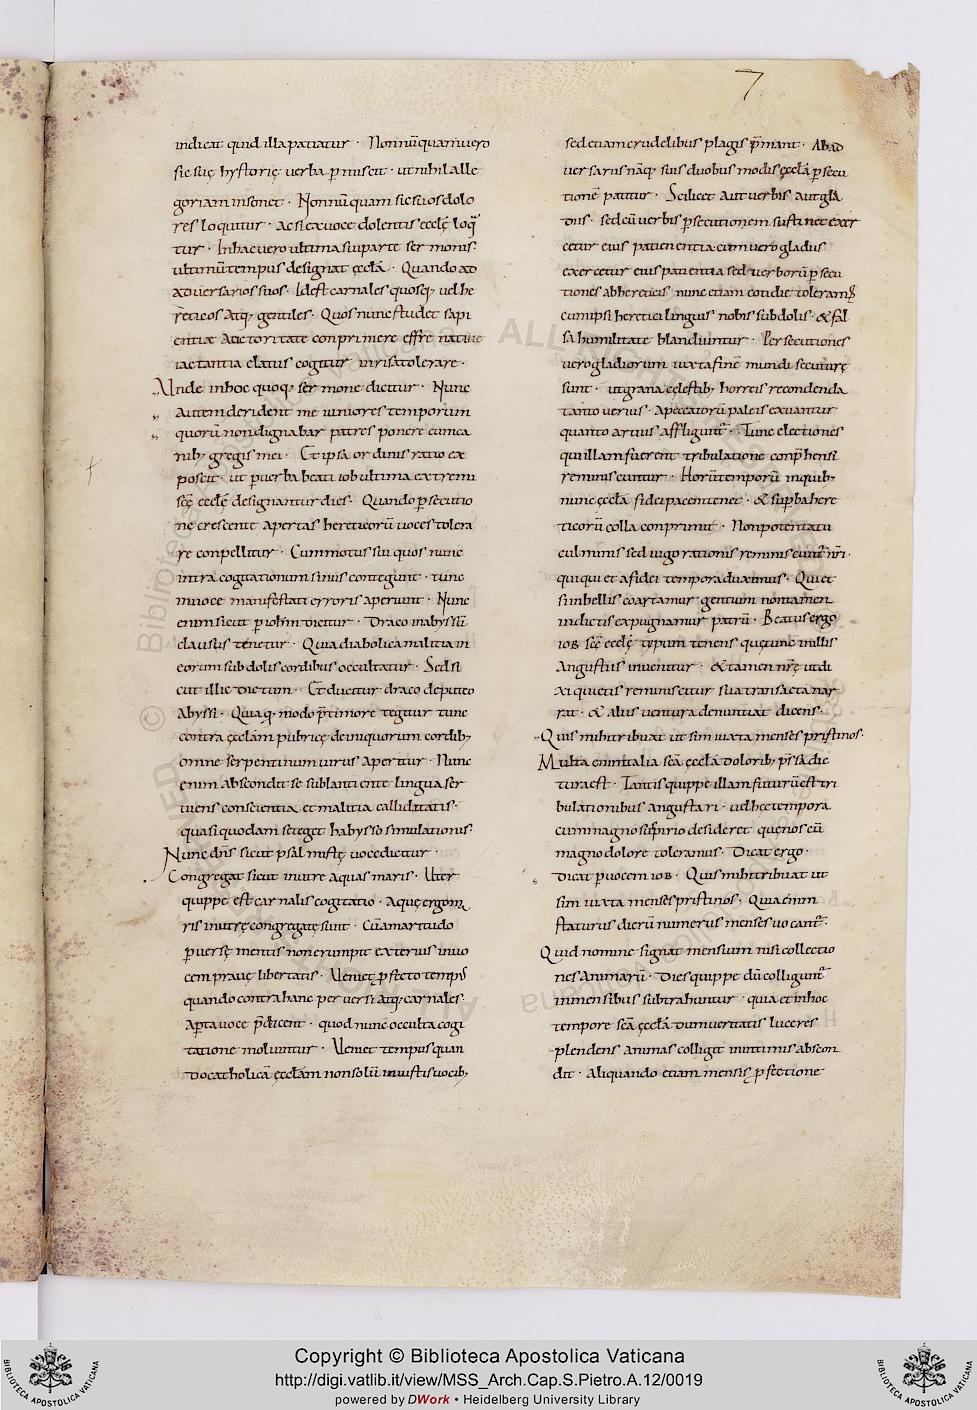 7
indicat quid illa patiatur · Nonnūquam uero
sic suę hystorię uerba p̄miscit · ut nihil alle
goriam insonet · Nonnūquam sic suos dolo
res loquitur · Ac si ex uoce dolentis ęcclę loq̄
tur · In hac uero ultima sui parte sermonis
ultimū tempus designat ęcclā · Quando ad
aduersarios suos · Idest carnales quosq; uel he
reticos atq; gentiles · Quos nunc studet sapi
entiæ auctoritate conprimere effrenatiue
iactantia elatus cogitur inrisa tolerare ·
Unde in hoc quoq; sermone dicitur · Nunc
autem derident me iuniores temporum
quorū non dignabar patres ponere cum ca
nib; gregis mei · Et ipsa ordinis ratio ex
poscit · ut p uerba beati iob ultima extremi
scē ecclę designantur dies · Quando psecutio
ne crescente apertas hereticorū uoces tolera
re conpellitur · Cum motus sui quos nunc
intra cogitationum sinus contegunt · tunc
in uoce manifestati erroris aperiunt · Nunc
enim sicut p ioh̄m dicitur · Draco in abyssū
clausus tenetur · Quia diabolica malitia in
eorum subdolis cordibus occultatur · Sed si
cut illic dictum · Et ducetur draco de puteo
abyssi · Quia q; modo p̄ timore tegitur tunc
contra ęcclām publicę de iniquorum cordib;
omne serpentinum uirus aperitur · Nunc
enim abscondit se sub lanticente lingua ser
uiens conscientia et malitia calliditatis ·
quasi quodam se teget habysso simulationis ·
Nunc dn̄s sicut psalmistę uoce dicitur ·
Congregat sicut in utre aquas maris · Uter
quippe est carnalis cogitatio · Aquę ergo ma
ris in utrę congregatę sunt · Cū amaritudo
puersę mentis non erumpit exterius in uo
cem prauę libertatis · Ueniet p̄fecto tempus
quando contra hanc peruersi atq; carnales
apta uoce p̄dicent · quod nunc occulta cogi
tatione moliuntur · Ueniet tempus quan
do catholicā ęcclām non solū iniustis uocib;
sed etiam crudelibus plagis p̄mant · Ab ad
uersariis nāq; suis duobus modis ęcclā psecu
tionē patitur · Scilicet aut uerbis aut gla
diis · sed cū uerbis psecutionem sustinet exer
cetur eius patientia cum uero gladiis
exercetur eius patientia sed uerborū psecu
tiones ab hereticis nunc etiam cotidie toleramus
cum ipsi heretici linguis nobis subdolis · & fal
sa humilitate blandiuntur · Persecutiones
uero gladiorum iuxta finē mundi secuturę
sunt · ut grana cęlestib; horreis recondenda
tanto uerius · a peccatorū paleis exuantur
quanto artius affligunt̄ · Tunc electi omnes
qui illam fuerent tribulatione conp̄hensi
reminiscuntur · Horū temporū in quib;
nunc ęcclā fidei pacem tenet · & supba here
ticorū colla conprimit · Non potentatu
culminis sed iugo rationis reminiscunt̄ nr̄i ·
qui quiet a fidei tempora duximus · Qui et
si in bellis coartamur gentium non tamen
in dictis expugnamur patrū · Beatus ergo
iob scē ecclę typum tenens quę tunc in illis
angustiis inuenitur · & tamen nr̄ę ut di
xi quietis reminiscitur sua transacta nar
rat · & aliis uentura denuntiat dicens ·
Quis mihi tribuat ut sim iuxta menses pristinos ·
Multa enim talia scā ęcclā dolorib; p̄ssa dic
tura est · Tantis quippe illam futurū est tri
bulationibus angustari · ut hęc tempora
cum magno suspirio desideret quę nos cū
magno dolore toleramus · Dicat ergo ·
Dicat p uocem iob · Quis mihi tribuat ut
sim iuxta menses pristinos · Quia enim
staturus dierū numerus menses uocant̄ ·
Quid nomine signat mensium nisi collectio
nes animarū · Dies quippe dū colligunt̄
in mensibus subtrahuntur · quia et in hoc
tempore scā ęcclā dum ueritatis luce res
plendens animas colligit in intimis abscon
dit · Aliquando etiam mensis p fectione
Copyright © Biblioteca Apostolica Vaticana
http://digi.vatlib.it/view/MSS_Arch.Cap.S.Pietro.A.12/0019
powered by DWork • Heidelberg University Library